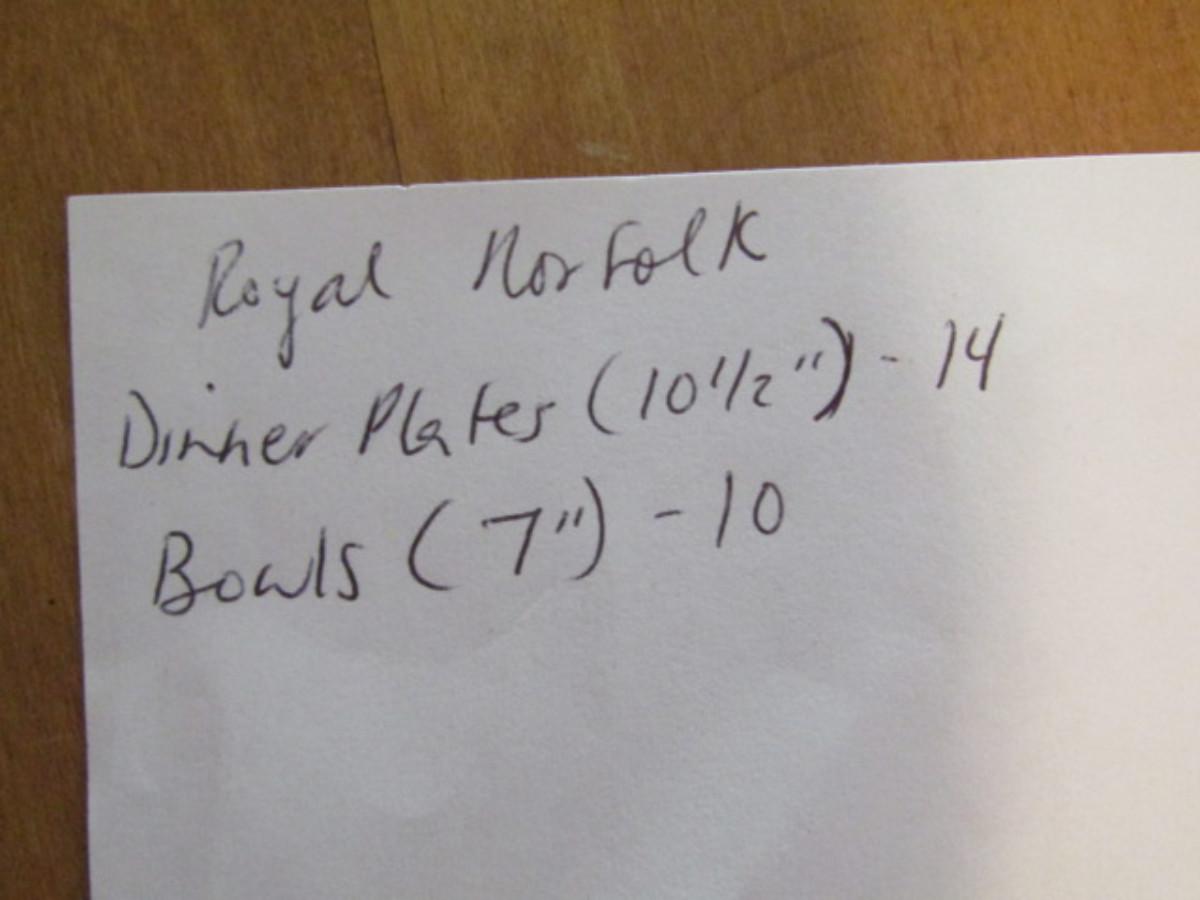 Royal Norfolk
Dinner Plates (10 1/2") - 14
Bowls (7") - 10